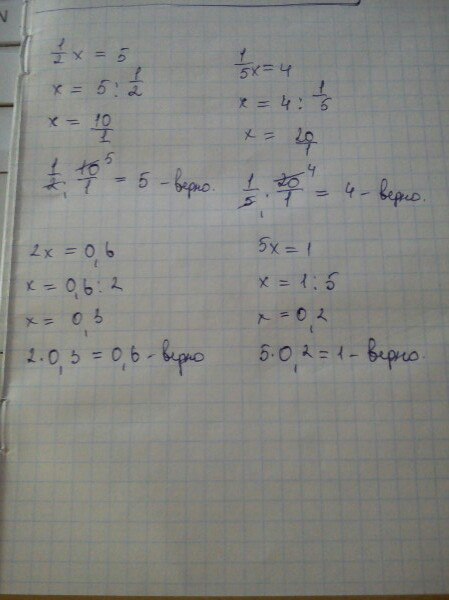 1/2 x = 5
x = 5 : 1/2
x = 10/1
1/2 · 10/1 5 = 5 - верно.
1/5x = 4
x = 4 : 1/5
x = 20/1
1/5 · 20/1 4 = 4 - верно.
2x = 0,6
x = 0,6 : 2
x = 0,3
2·0,3 = 0,6 - верно
5x = 1
x = 1 : 5
x = 0,2
5·0,2 = 1 - верно.